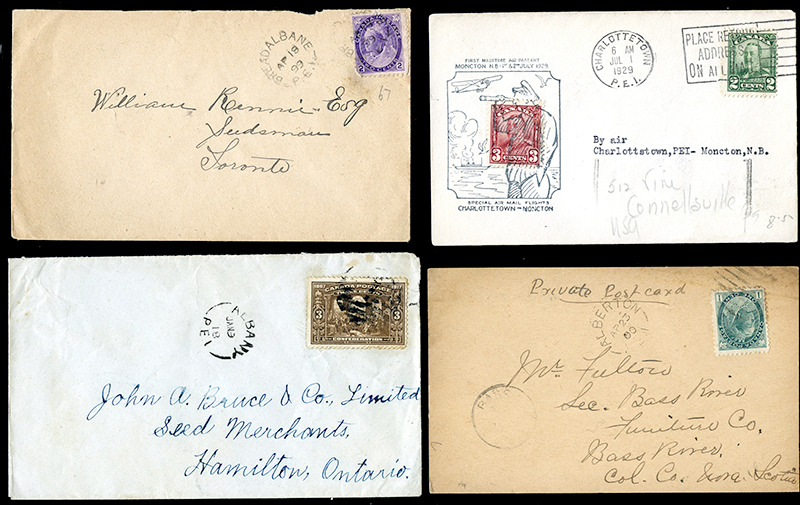 BREADALBANE
AP 19
99
P.E.I.
2 CENTS 2
67
William Rennie Esq
Seedsman
Toronto
CHARLOTTETOWN
6 AM
JUL 1
1929
P.E.I.
PLACE RETURN
ADDRE
ON ALL
CANADA
2 CENTS 2
FIRST MARITIME AIR PAGEANT
MONCTON N.B. 1st & 2nd JULY 1929
3 CENTS 3
SPECIAL AIR MAIL FLIGHTS
CHARLOTTETOWN - MONCTON
By air
Charlottstown,PEI- Moncton,N.B.
512 Vine
Connellsville
Pa
USA
8.5
ALBANY
JAN 9
18
P E I
1867 1917
CANADA POSTAGE
3 3
CONFEDERATION
John A. Bruce & Co., Limited
Seed Merchants,
Hamilton, Ontario.
Private Post card
ALBERTON
AP 23
00
1 1
PARR
Mr Fulton
Sec. Bass River
Furniture Co.
Bass River,
Col. Co. Nova Scotia